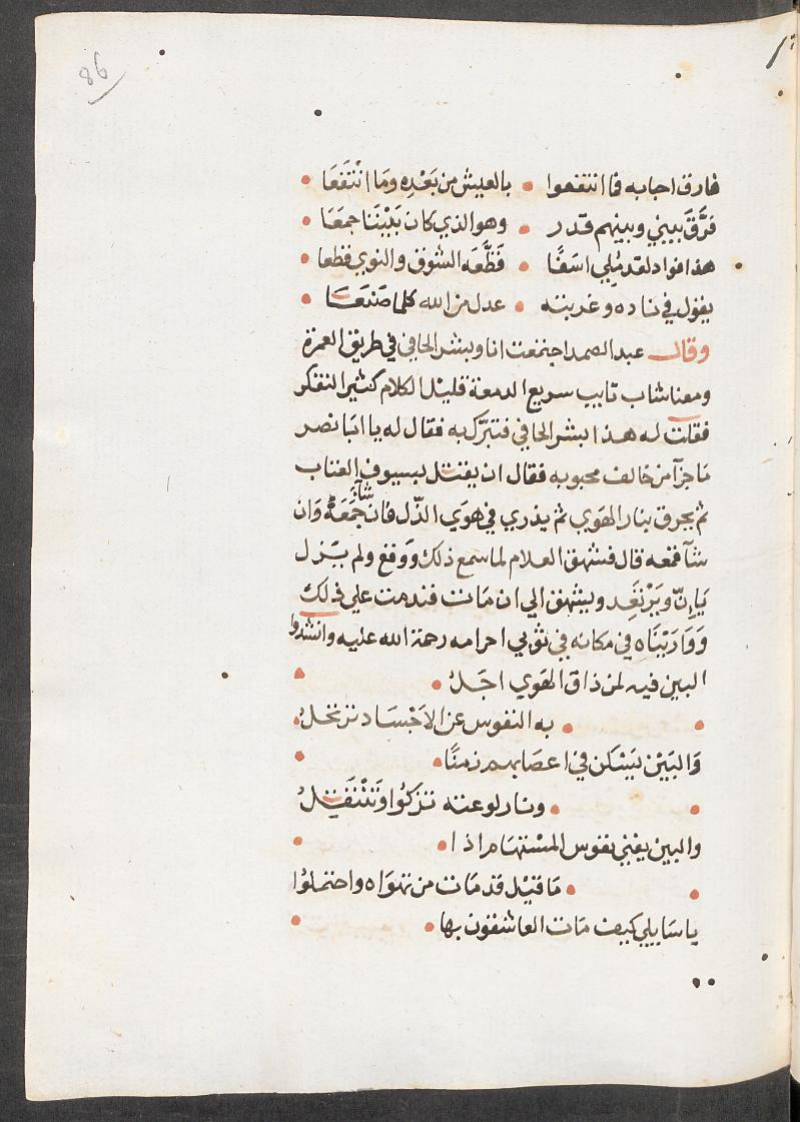 86
فارق احبابه فما انتفعوا • بالعيش من بَعْدِه ومَا انْتَفَعَا •
فرَّقَ بيني وبينهم قدر • وهو الذي كان بَيْننَا جمَعَا •
هذا فواد لقد مُلِي اسَفًا • قَطَّعَه الشوق والنوي قطعا •
يقول في ناده وغربته • عدل من الله كلما صَنَعَا •
وقال عبد الصمد اجتمعت انا وبشر الحافي في طريق العمرة
ومعنا شاب تايب سريع الدمعة قليل الكلام كثير التفكر
فقلت له هذا بشر الحافي فتبرّك به فقال له يا ابا نصر
مَا جزآ من خالف محبوبه فقال ان يقتل بسيوف العتاب
ثم يحرق بنار الهوي ثم يذري في هوَي الذّل فان شآء جمَعَهُ وَان
شآ قمعه قال فشهق الغلام لما سمع ذلك ووقع ولم يَزل
يَاِنّ ويَرْتَعِد ويشهق الي ان مَات فندمت علي ذلك
وَوَارَيْنَاه في مكانه في ثوبي احرامه رحمة الله عليه وانشدوا
البين فيه لمن ذاق الهوي اجَلُ •
• به النفوس عن الاجْسَاد ترتحلُ •
وَالبَيْن يَسْكن في اعصَابهم زمنًا •
• ونار لوعته تزكُوا وَتَنْتَقِلُ
والبين يفني نفوس المسْتهَام اذا •
• مَا قيْل قد مَات من تهوَاه واحتملُوا
يا سَايلي كيف مَات العاشقون بها •